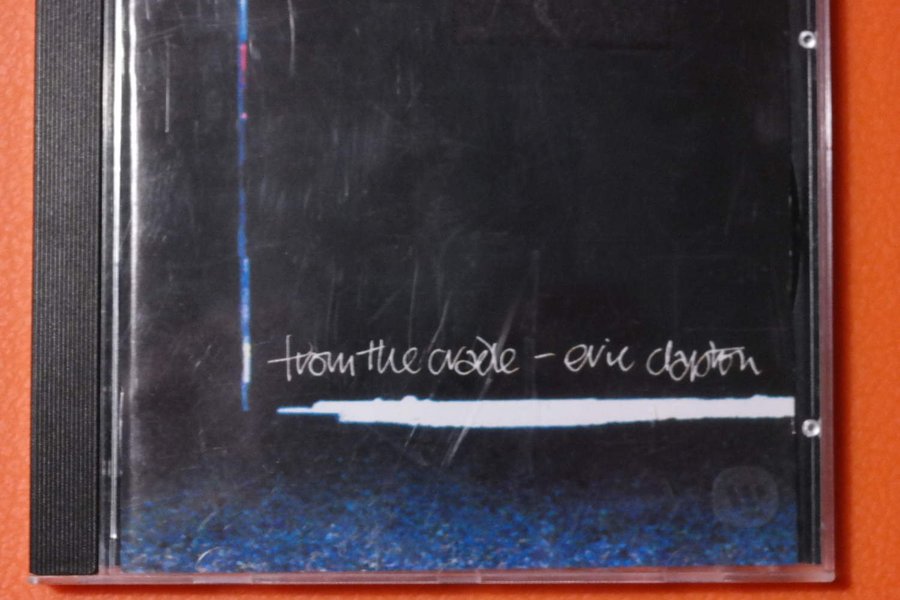 from the cradle - eric clapton